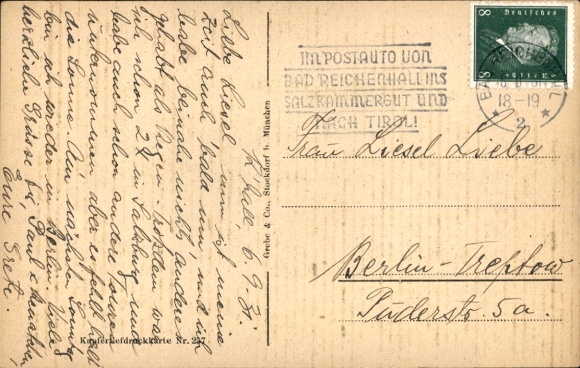 Rchall, 6.9.31.
Liebe Liesel, nun ist meine
Zeit auch bald um, und ich
habe beinahe nichts anderes
gehabt als Regen. Trotzdem war
ich schon 2x in Salzburg und
habe auch schon andere Touren
unternommen aber es fehlt halt
die Sonne. Am nächsten Sonntag
bin ich wieder in Berlin. Viele
herzliche Grüsse Dir, Paul &
Eure Grete.
Kupfertiefdruckkarte Nr. 237
Grebe & Co., Stockdorf b. München
IM POSTAUTO VON
BAD REICHENHALL INS
SALZKAMMERGUT UND
NACH TIROL!
BAD REICHENHALL
18-19
* 2 *
8 Deutsches Reich 8
Frau Liesel Liebe
Berlin-Treptow
Puderstr. 5a.